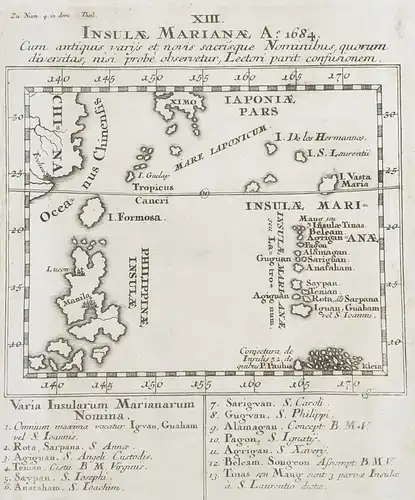 Zu Num. 4. in dem Theil.
XIII.
INSULÆ MARIANÆ A.º 1684.
Cum antiquis varijs et novis sacrisque Nominibus, quorum
diversitas, nisi probe observetur, Lectori parit confusionem.
140 145 150 155 160 165 170
30
25
20
15
10
CHINA
Oceanus Chinensis
XIMO
IAPONIÆ PARS
MARE IAPONICUM
I. De los Hermanos.
I. S. Laurentii
I. Vasta Maria
Tropicus Cancri
I. Formosa.
INSULÆ MARIANÆ
INSULÆ MARIANÆ seu Latronum.
Maug seu
Insulæ Tinas.
Beleam.
Agrigan
Pagon
Alamagan
Guguan
Sariguan
Anatahan
Saypan.
Tenian
Aguiguan
Rota, Sarpana
Iguan, Guaham
vel S. Ioannis.
PHILIPPINÆ INSULÆ
Lucon
Manila
Conjectura de
Insulis 32. de
quibus P. Paulus Klein
140 145 150 155 160 165 170
Varia Insularum Marianarum
Nomina.
1. Omnium maxima vocatur Igvan, Guaham
vel S. Ioannis.
2. Rota, Sarpana, S. Annæ.
3. Agiguan, S. Angeli Custodis.
4. Tenian. B. M. Virginis.
5. Saypan. S. Iosephi.
6. Anatahan. S. Ioachim.
7. Sarigvan. S. Caroli.
8. Gugvan. S. Philippi.
9. Alamagan. Concept. B. M. V.
10. Pagon, S. Ignatij.
11. Agrigan. S. Xaverij.
12. Beleam. Songeon Assompt. B. M. V.
13. Tinas seu Maug sunt 3 parvæ Insulæ
à S. Laurentio dictæ.